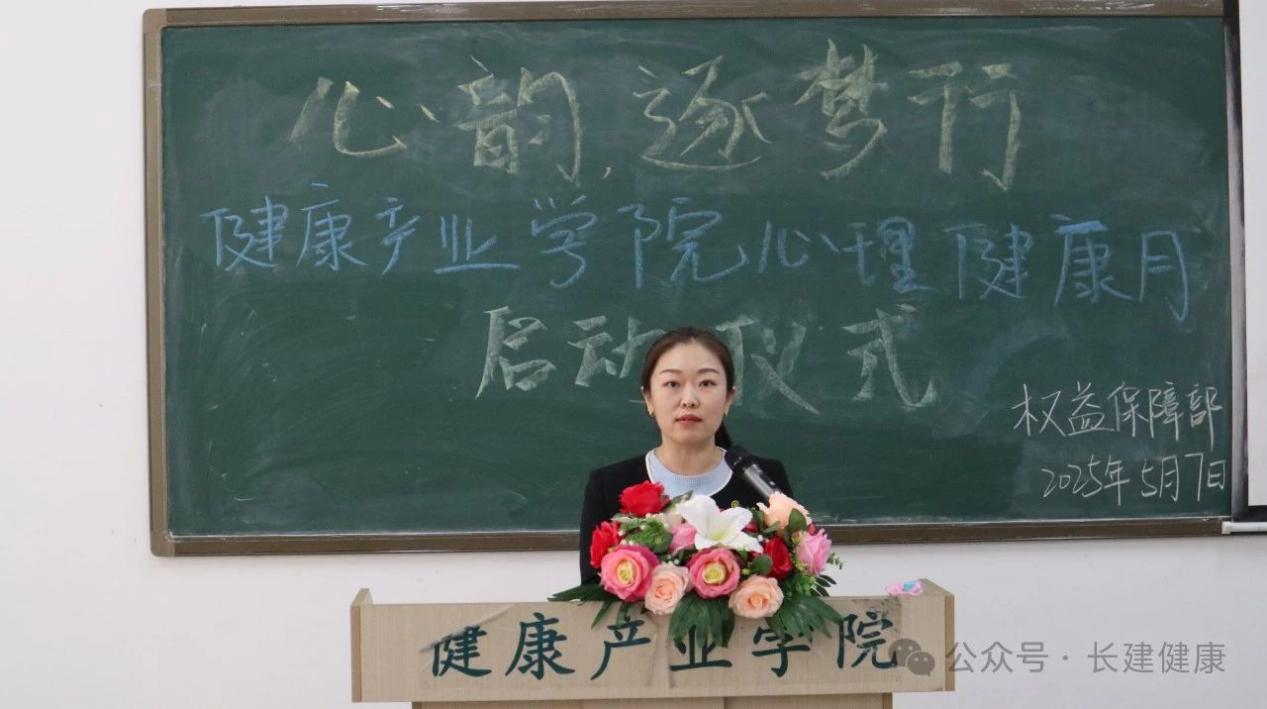 心韵,逐梦行
健康产业学院心理健康月
启动仪式
权益保障部
2025年5月7日
健康产业学院
公众号·长建健康